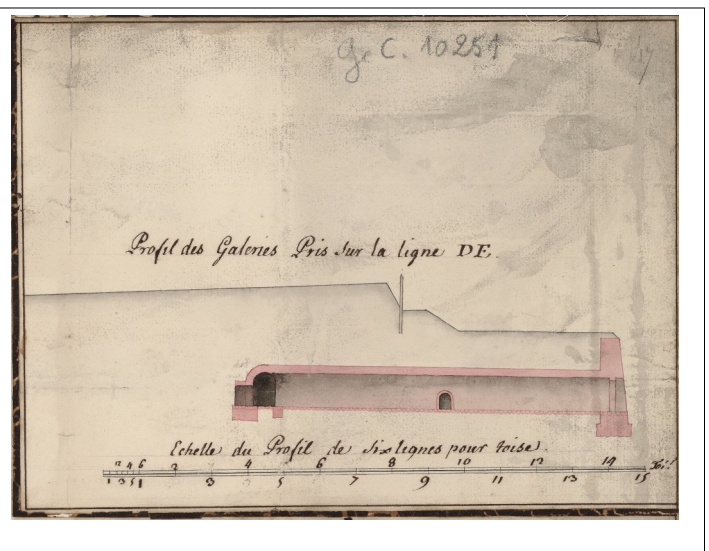 Ge C. 10251
17
Profil des Galeries Pris sur la ligne DE.
Echelle du Profil de six lignes pour toise.
2 4 6 2 4 6 8 10 12 14
1 3 5 1 3 5 7 9 11 13 15